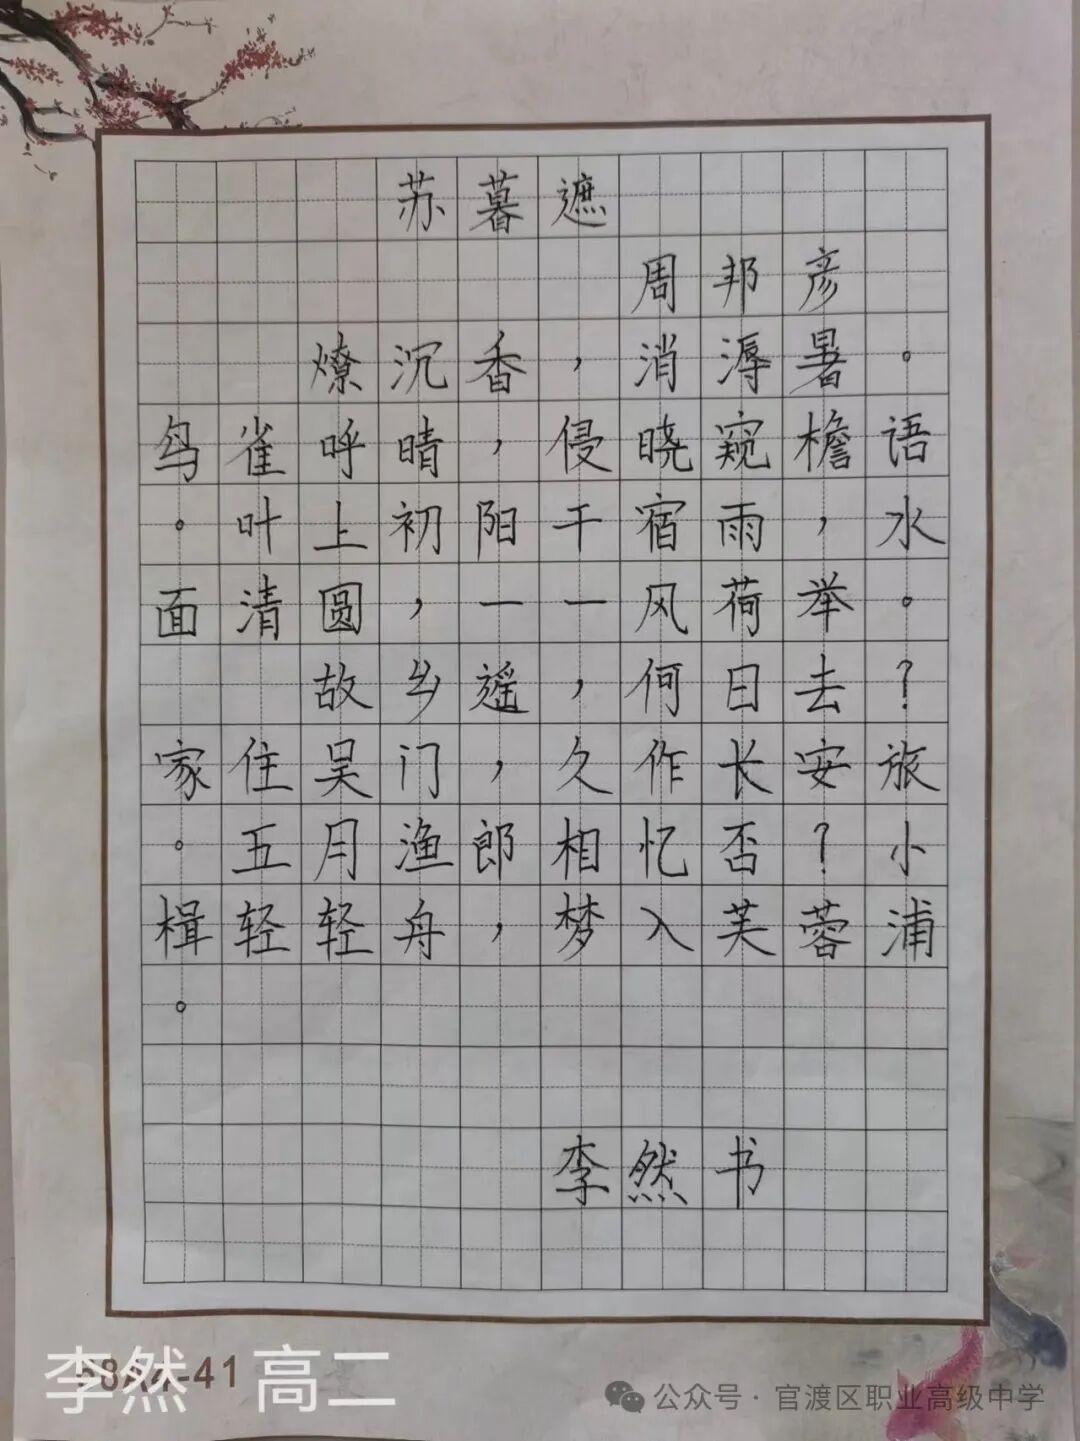 苏暮遮
周邦彦
燎沉香，消溽暑。
鸟雀呼晴，侵晓窥檐语
。叶上初阳干宿雨，水
面清圆，一一风荷举。
故乡遥，何日去？
家住吴门，久作长安旅
。五月渔郎相忆否？小
楫轻轻舟，梦入芙蓉浦
。
李然书
李然 高二
-41
公众号·官渡区职业高级中学